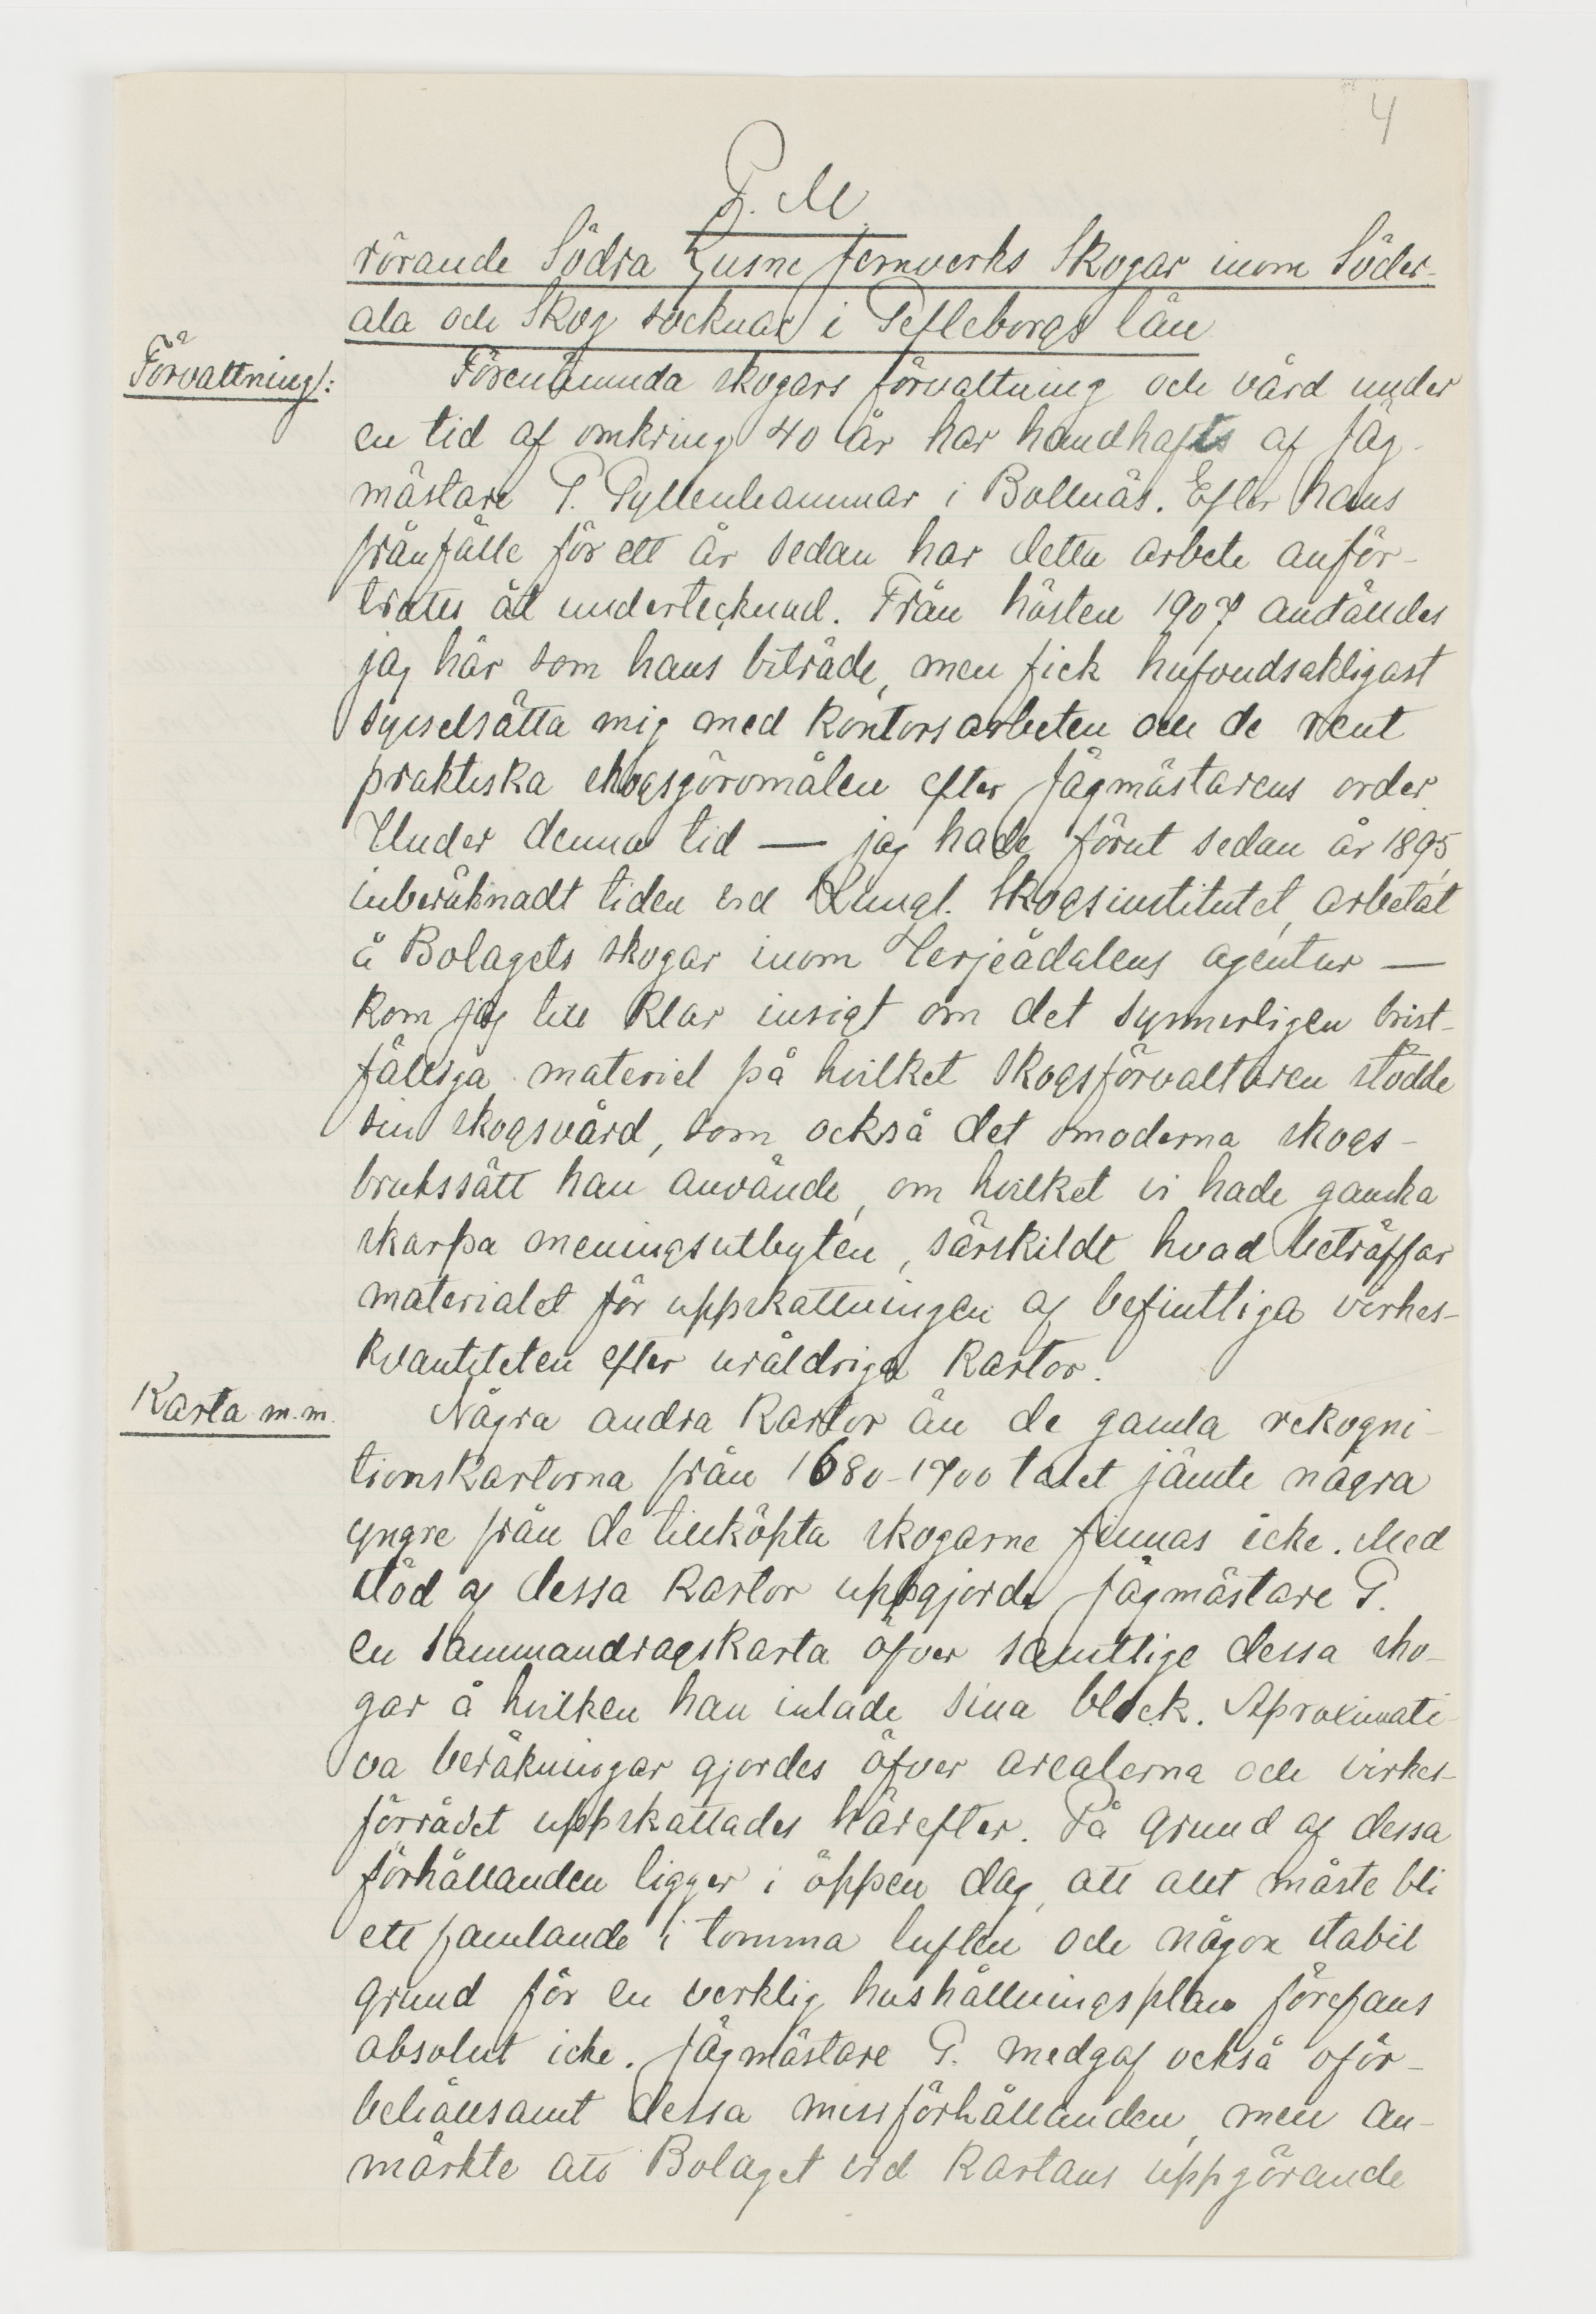 4
P. M.
rörande Södra Ljusne Jernverks Skogar inom Söder-
ala och Skog socknar i Gefleborgs län
Förvaltning:
Förenämnda skogars förvaltning och vård under
en tid af omkring 40 år har handhafts af Jäg-
mästare G. Gyllenhammar i Bollnäs. Efter hans
frånfälle för ett år sedan har detta arbete anför-
trotts åt undertecknad. Från hösten 1907 anstäldes
jag här som hans biträde, men fick hufvudsakligast
sysselsätta mig med kontorsarbeten och de rent
praktiska skogsgöromålen efter Jägmästarens order.
Under denna tid — jag hade förut sedan år 1895,
inberäknadt tiden vid Kungl. Skogsinstitutet, arbetat
å Bolagets skogar inom Herjeådalens agentur —
kom jag till klar insigt om det synnerligen brist-
fälliga materiel på hvilket Skogsförvaltaren stödde
sin skogsvård, som också det omoderna skogs-
brukssätt han använde, om hvilket vi hade ganska
skarpa meningsutbyten, särskildt hvad beträffar
materialet för uppskattningen af befintliga virkes-
kvantiteten efter uråldriga kartor.
Karta m.m.
Några andra kartor än de gamla rekogni-
tionskartorna från 1680-1700 talet jämte några
yngre från de tillköpta skogarne finnas icke. Med
stöd af dessa kartor uppgjorde Jägmästare G.
en sammandragskarta öfver samtlige dessa sko-
gar å hvilken han inlade sina block. Aproximati-
va beräkningar gjordes öfver arealerna och virkes-
förrådet uppskattades härefter. På grund af dessa
förhållanden ligger i öppen dag, att allt måste bli
ett famlande i tomma luften och någon stabil
grund för en verklig hushållningsplan förefans
absolut icke. Jägmästare G. medgaf också oför-
behållsamt dessa missförhållanden, men an-
märkte att Bolaget vid kartans uppgörande